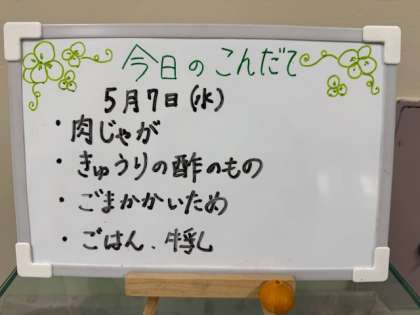 今日のこんだて
5月7日(水)
・肉じゃが
・きゅうりの酢のもの
・ごまかかいため
・ごはん、牛乳